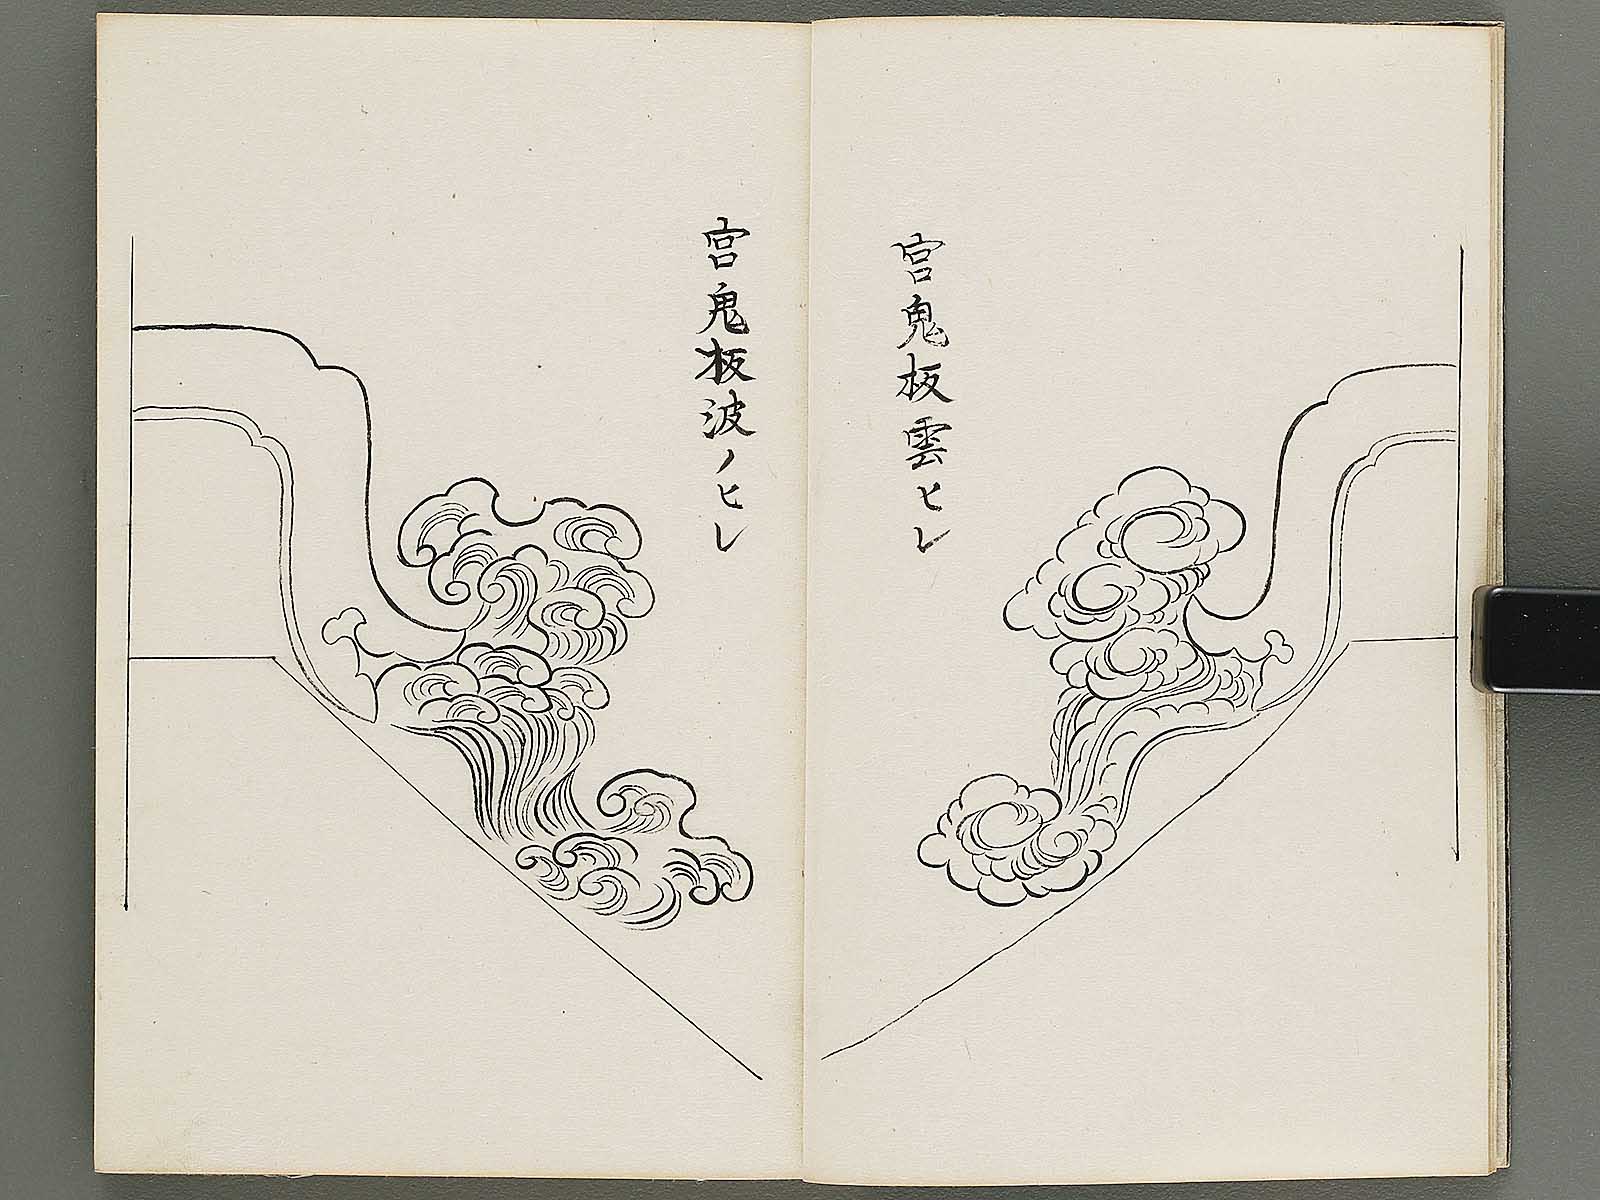 宮鬼板雲ヒレ
宮鬼板波ノヒレ